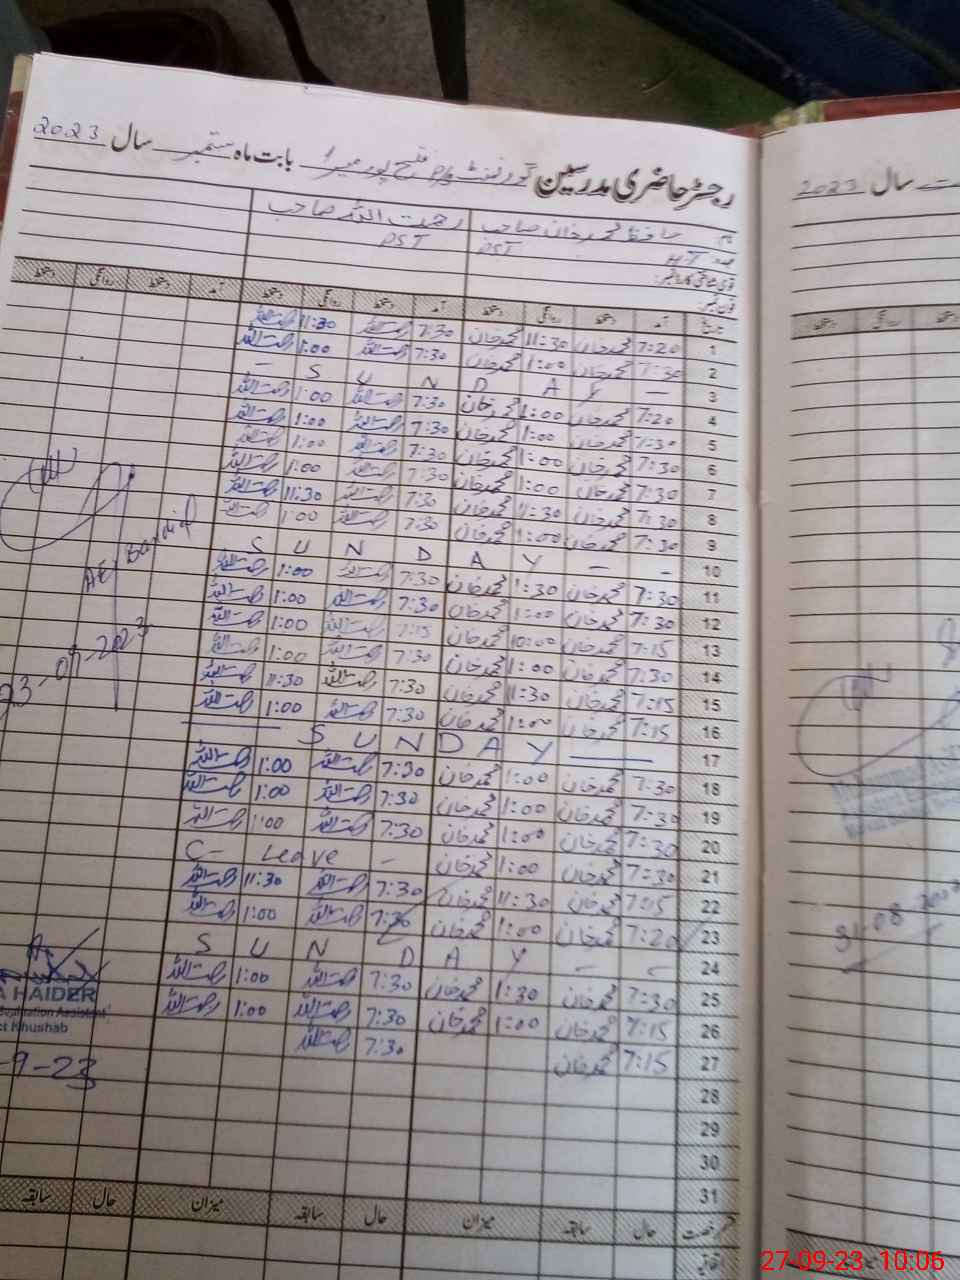 رجسٹر حاضری مدرسین گورنمنٹ P/S فتح پور میرا بابت ماہ ستمبر سال 2023
نام حافظ محمد خان صاحب رحمت اللہ صاحب
عہدہ HT PST PST
قومی شناختی کارڈ نمبر:
فون نمبر:
تاریخ آمد دستخط روانگی دستخط آمد دستخط روانگی دستخط آمد دستخط روانگی دستخط
1 7:20 محمد خان 11:30 محمد خان 7:30 رحمت اللہ 11:30 رحمت اللہ
2 7:30 محمد خان 1:00 محمد خان 7:30 رحمت اللہ 1:00 رحمت اللہ
3 — S U N D A Y —
4 7:20 محمد خان 1:00 محمد خان 7:30 رحمت اللہ 1:00 رحمت اللہ
5 7:30 محمد خان 1:00 محمد خان 7:30 رحمت اللہ 1:00 رحمت اللہ
6 7:30 محمد خان 1:00 محمد خان 7:30 رحمت اللہ 1:00 رحمت اللہ
7 7:30 محمد خان 1:00 محمد خان 7:30 رحمت اللہ 1:00 رحمت اللہ
8 7:30 محمد خان 11:30 محمد خان 7:30 رحمت اللہ 11:30 رحمت اللہ
9 7:30 محمد خان 1:00 محمد خان 7:30 رحمت اللہ 1:00 رحمت اللہ
10 S U N D A Y — —
11 7:30 محمد خان 1:30 محمد خان 7:30 رحمت اللہ 1:00 رحمت اللہ
12 7:30 محمد خان 1:00 محمد خان 7:30 رحمت اللہ 1:00 رحمت اللہ
13 7:15 محمد خان 10:00 محمد خان 7:15 رحمت اللہ 1:00 رحمت اللہ
14 7:30 محمد خان 1:00 محمد خان 7:30 رحمت اللہ 1:00 رحمت اللہ
15 7:15 محمد خان 11:30 محمد خان 7:30 رحمت اللہ 11:30 رحمت اللہ
16 7:15 محمد خان 1:00 محمد خان 7:30 رحمت اللہ 1:00 رحمت اللہ
17 — S U N D A Y —
18 7:30 محمد خان 1:00 محمد خان 7:30 رحمت اللہ 1:00 رحمت اللہ
19 7:30 محمد خان 1:00 محمد خان 7:30 رحمت اللہ 1:00 رحمت اللہ
20 7:30 محمد خان 1:00 محمد خان 7:30 رحمت اللہ 1:00 رحمت اللہ
21 7:30 محمد خان 1:00 محمد خان C- Leave –
22 7:15 محمد خان 11:30 محمد خان 7:30 رحمت اللہ 11:30 رحمت اللہ
23 7:20 محمد خان 1:00 محمد خان 7:30 رحمت اللہ 1:00 رحمت اللہ
24 S U N D A Y — —
25 7:30 محمد خان 1:30 محمد خان 7:30 رحمت اللہ 1:00 رحمت اللہ
26 7:15 محمد خان 1:00 محمد خان 7:30 رحمت اللہ 1:00 رحمت اللہ
27 7:15 محمد خان 7:30 رحمت اللہ
28
29
30
31
رخصت حال سابقہ میزان حال سابقہ میزان حال سابقہ
اتفاقیہ
23-09-2023
A HAIDER
Evaluation Assistant
ct Khushab
-9-23
سال 2023
دستخط روانگی دستخط
31-08-2023
27-09-23 10:06